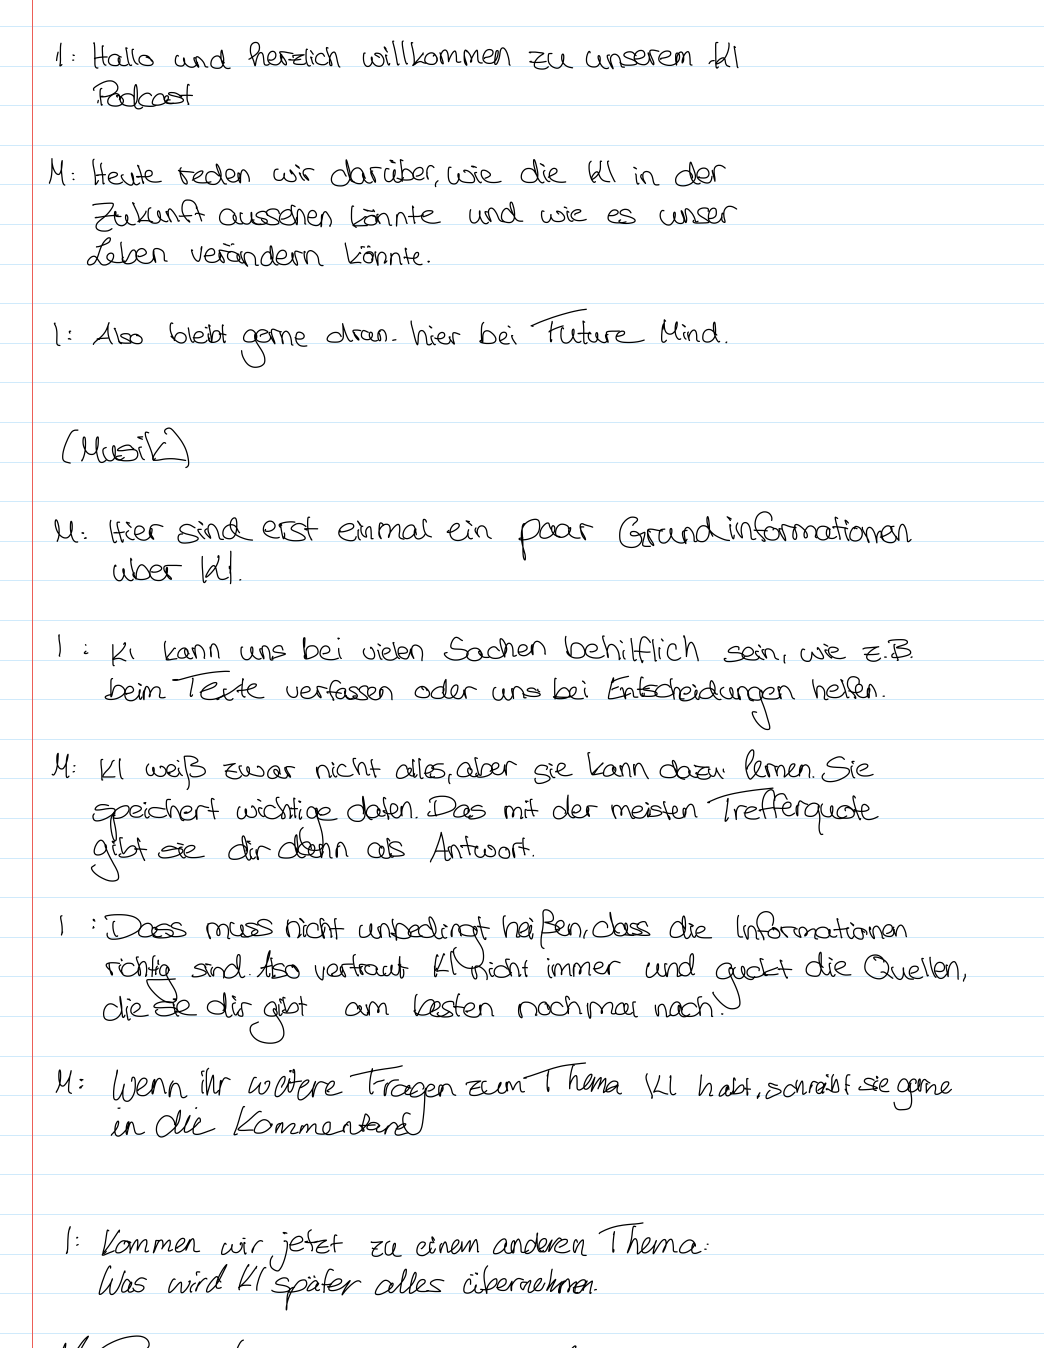 I: Hallo und herzlich willkommen zu unserem KI
Podcast
M: Heute reden wir darüber, wie die KI in der
Zukunft aussehen könnte und wie es unser
Leben verändern könnte.
I: Also bleibt gerne dran. hier bei Future Mind.
(Musik)
M: Hier sind erst einmal ein paar Grundinformationen
über KI.
I: KI kann uns bei vielen Sachen behilflich sein, wie z.B.
beim Texte verfassen oder uns bei Entscheidungen helfen.
M: KI weiß zwar nicht alles, aber sie kann dazu lernen. Sie
speichert wichtige daten. Das mit der meisten Trefferquote
gibt sie dir dann als Antwort.
I: Dass muss nicht unbedingt heißen, dass die Informationen
richtig sind. Also vertraut KI nicht immer und guckt die Quellen,
die sie dir gibt am besten nochmal nach.
M: Wenn ihr weitere Fragen zum Thema KI habt, schreibt sie gerne
in die Kommentare
I: Kommen wir jetzt zu einem anderen Thema:
Was wird KI später alles übernehmen.